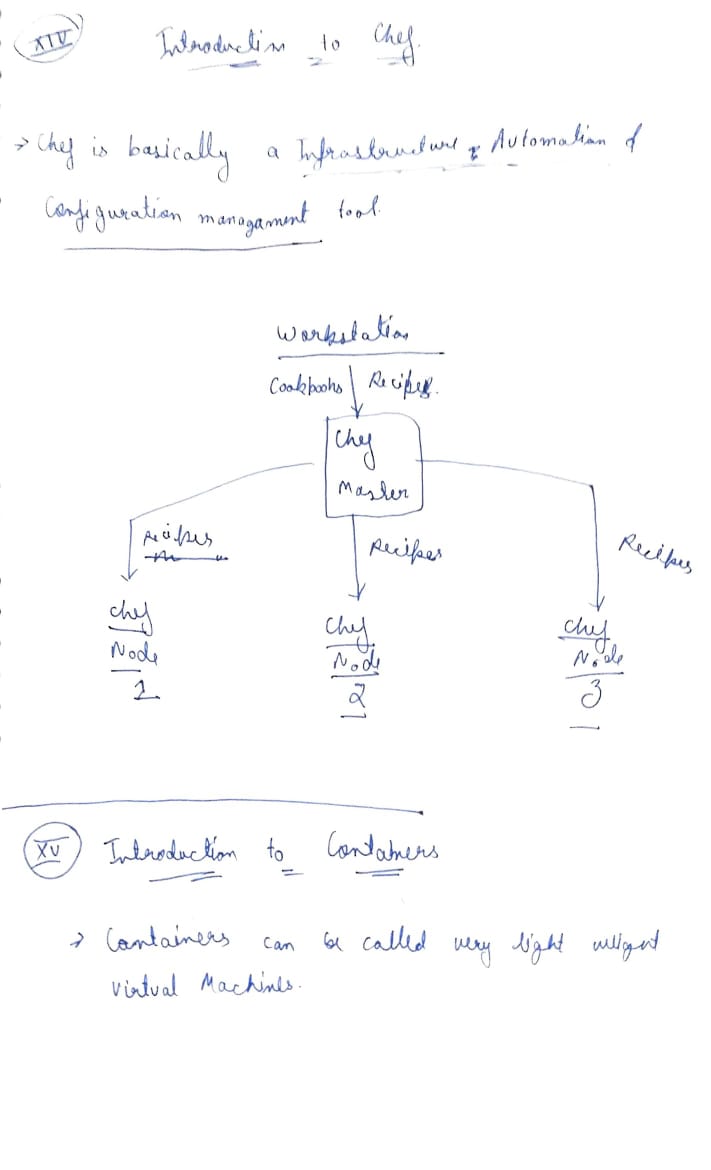 XIV Introduction to Chef.
→ Chef is basically a Infrastructure & Automation &
Configuration managament tool.
Workstation
Cookbooks Recipes.
Chef
Master
Recipes Recipes Recipes
Chef Chef Chef
Node Node Node
1 2 3
XV Introduction to Containers
→ Containers can be called very light weight
Virtual Machines.